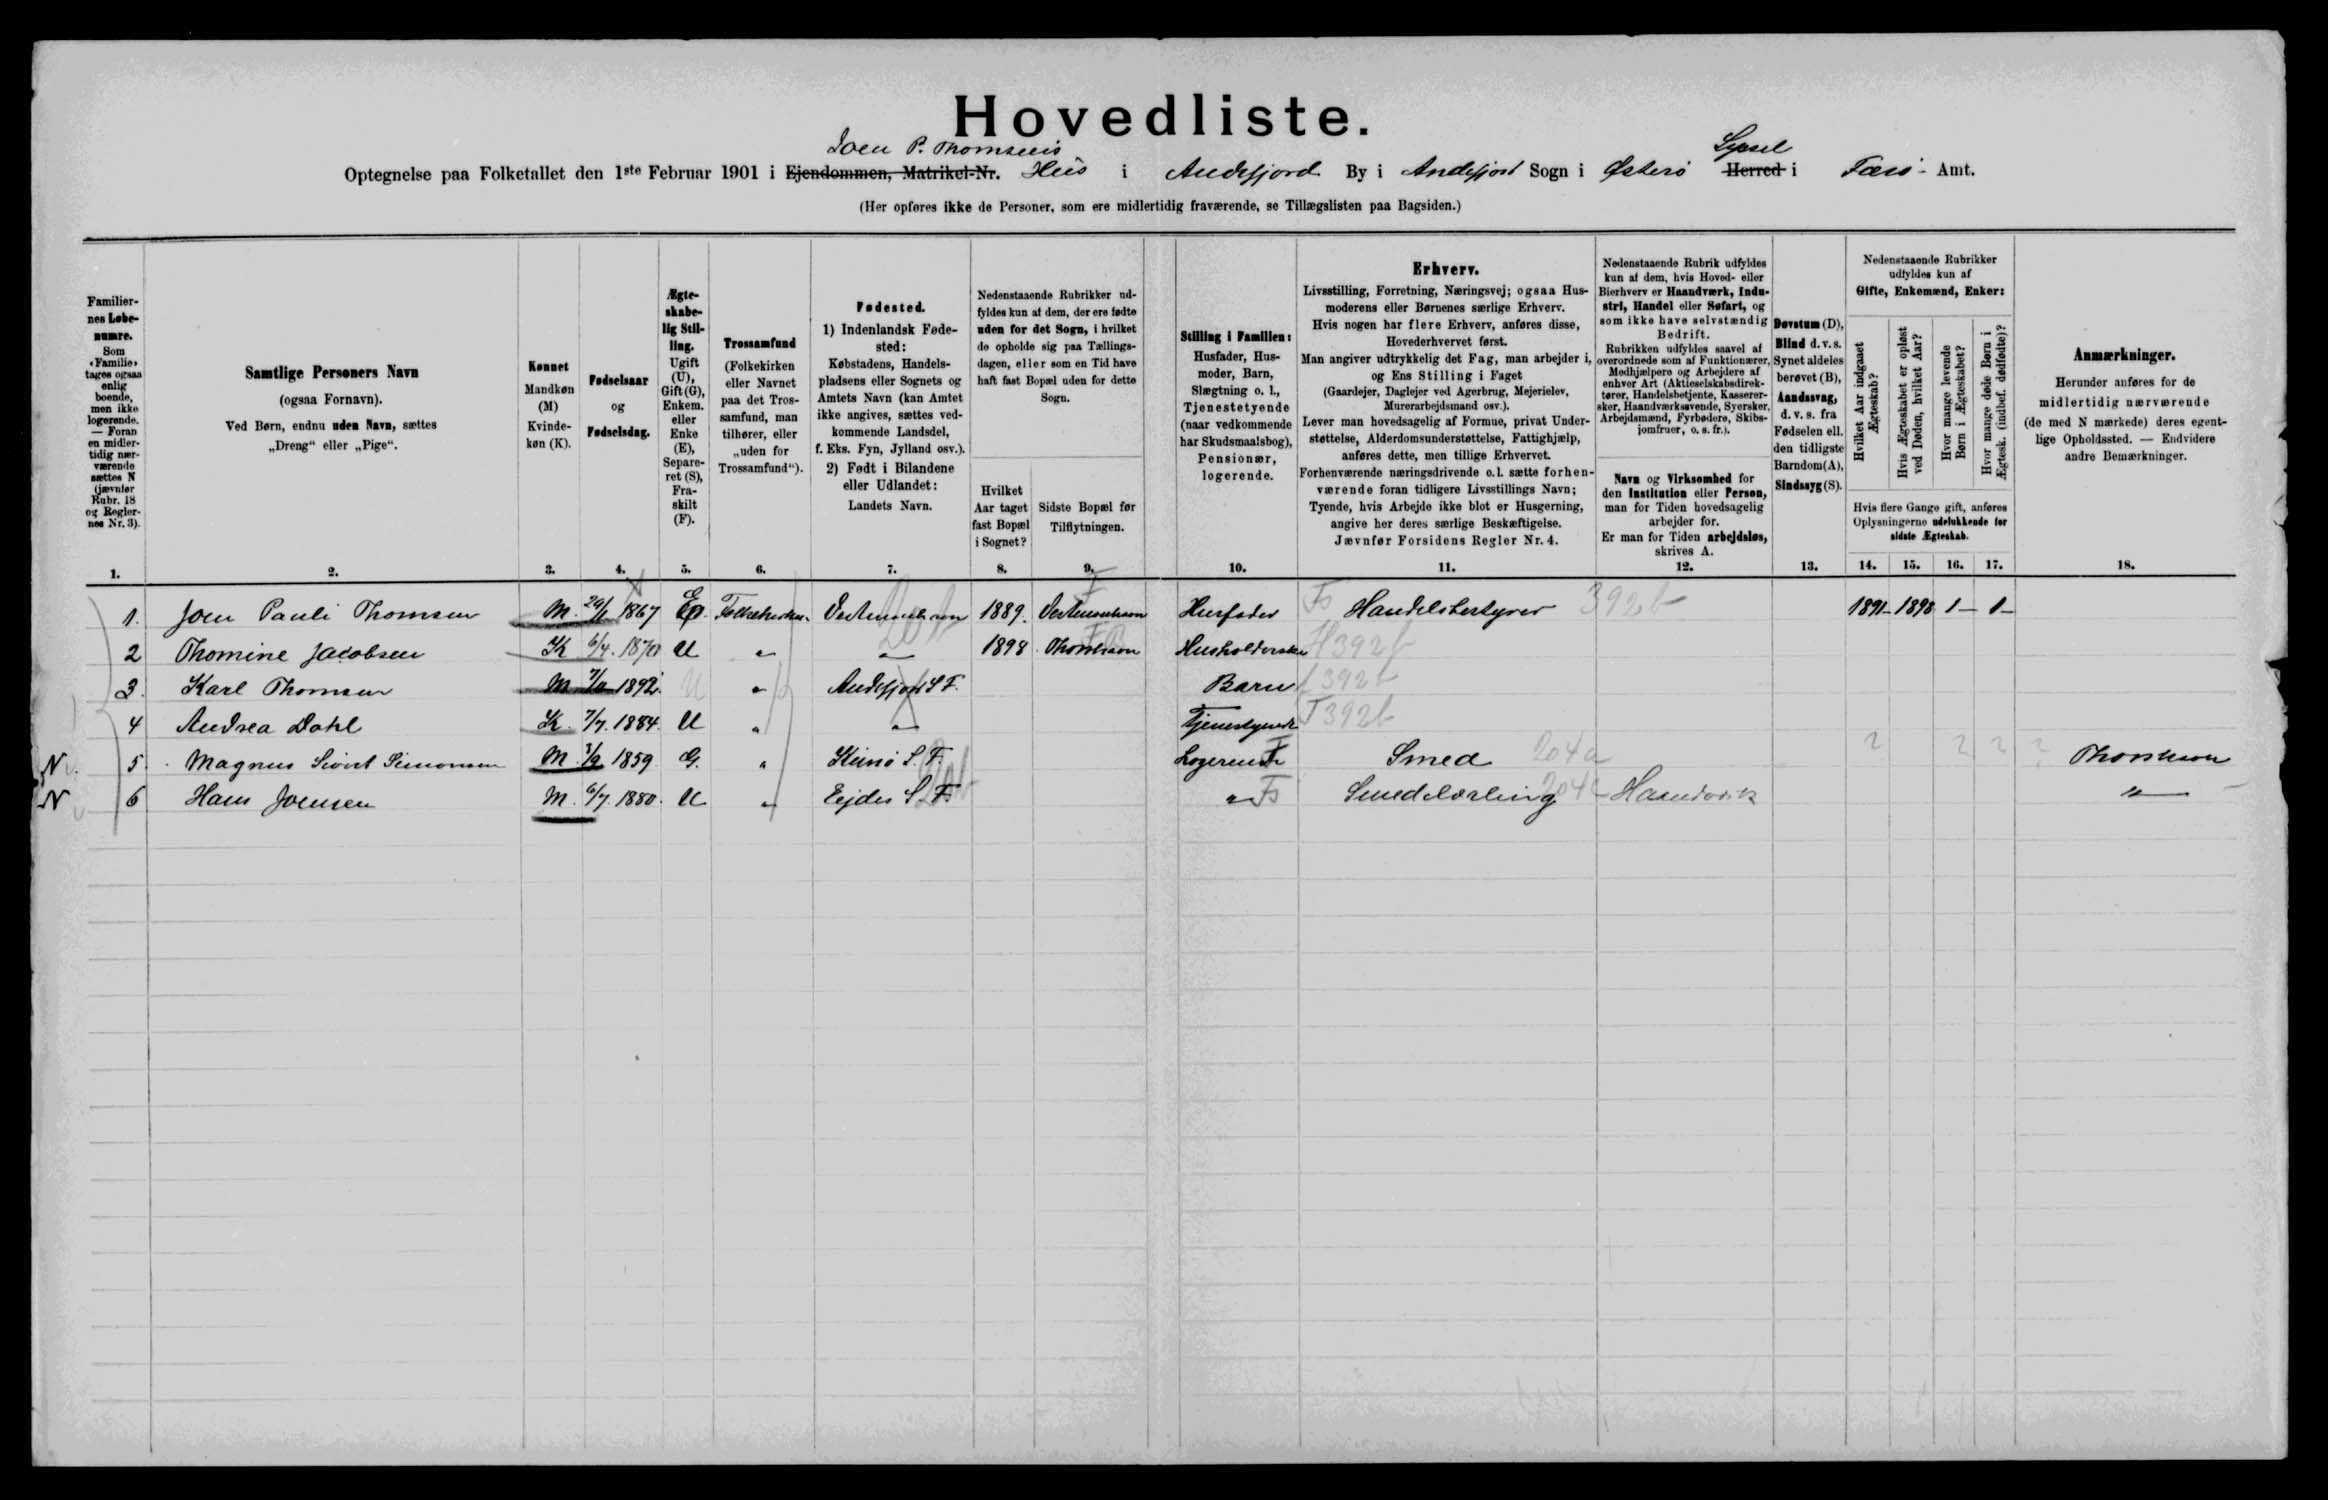 Hovedliste.
Joen P. Thomsens Sysel
Optegnelse paa Folketallet den 1ste Februar 1901 i Ejendommen, Matrikel-Nr. Hus i Andefjord By i Andefjord Sogn i Østerø Herred i Færø- Amt.
(Her opføres ikke de Personer, som ere midlertidig fraværende, se Tillægslisten paa Bagsiden.)
Familiernes Løbenumre.
Som «Familie» tages ogsaa enlig boende, men ikke logerende. — Foran en midlertidig nærværende sættes N (jævnfør Rubr. 18 og Reglernes Nr. 3).
Samtlige Personers Navn
(ogsaa Fornavn).
Ved Børn, endnu uden Navn, sættes
„Dreng“ eller „Pige“.
Kønnet
Mandkøn
(M)
Kvindekøn (K).
Fødselsaar
og
Fødselsdag.
Ægteskabelig Stilling.
Ugift (U), Gift (G), Enkem. eller Enke (E), Separeret (S), Fraskilt (F).
Trossamfund
(Folkekirken eller Navnet paa det Trossamfund, man tilhører, eller „uden for Trossamfund“).
Fødested.
1) Indenlandsk Fødested:
Købstadens, Handelspladsens eller Sognets og Amtets Navn (kan Amtet ikke angives, sættes vedkommende Landsdel, f. Eks. Fyn, Jylland osv.).
2) Født i Bilandene eller Udlandet:
Landets Navn.
Nedenstaaende Rubrikker udfyldes kun af dem, der ere fødte uden for det Sogn, i hvilket de opholde sig paa Tællingsdagen, eller som en Tid have haft fast Bopæl uden for dette Sogn.
Hvilket Aar taget fast Bopæl i Sognet?
Sidste Bopæl før Tilflytningen.
Stilling i Familien:
Husfader, Husmoder, Barn, Slægtning o. l., Tjenestetyende (naar vedkommende har Skudsmaalsbog), Pensionær, logerende.
Erhverv.
Livsstilling, Forretning, Næringsvej; ogsaa Husmoderens eller Børnenes særlige Erhverv.
Hvis nogen har flere Erhverv, anføres disse, Hovederhvervet først.
Man angiver udtrykkelig det Fag, man arbejder i, og Ens Stilling i Faget
(Gaardejer, Daglejer ved Agerbrug, Mejerielev, Murerarbejdsmand osv.).
Lever man hovedsagelig af Formue, privat Understøttelse, Alderdomsunderstøttelse, Fattighjælp, anføres dette, men tillige Erhvervet.
Forhenværende næringsdrivende o. l. sætte forhenværende foran tidligere Livsstillings Navn;
Tyende, hvis Arbejde ikke blot er Husgerning, angive her deres særlige Beskæftigelse.
Jævnfør Forsidens Regler Nr. 4.
Nedenstaaende Rubrik udfyldes kun af dem, hvis Hoved- eller Bierhverv er Haandværk, Industri, Handel eller Søfart, og som ikke have selvstændig Bedrift.
Rubrikken udfyldes saavel af overordnede som af Funktionærer, Medhjælpere og Arbejdere af enhver Art (Aktieselskabsdirektører, Handelsbetjente, Kasserersker, Haandværkssvende, Syersker, Arbejdsmænd, Fyrbødere, Skibsjomfruer, o. s. fr.).
Navn og Virksomhed for den Institution eller Person, man for Tiden hovedsagelig arbejder for.
Er man for Tiden arbejdsløs, skrives A.
Døvstum (D),
Blind d. v. s. Synet aldeles berøvet (B),
Aandssvag, d. v. s. fra Fødselen ell. den tidligste Barndom (A),
Sindssyg (S).
Nedenstaaende Rubrikker udfyldes kun af
Gifte, Enkemænd, Enker:
Hvilket Aar indgaaet Ægteskab?
Hvis Ægteskabet er opløst ved Døden, hvilket Aar?
Hvor mange levende Børn i Ægteskabet?
Hvor mange døde Børn i Ægtesk. (indbef. dødfødte)?
Hvis flere Gange gift, anføres Oplysningerne udelukkende for sidste Ægteskab.
Anmærkninger.
Herunder anføres for de midlertidig nærværende (de med N mærkede) deres egentlige Opholdssted. — Endvidere andre Bemærkninger.
1. 2. 3. 4. 5. 6. 7. 8. 9. 10. 11. 12. 13. 14. 15. 16. 17. 18.
1. Joen Pauli Thomsen M. 1867 E Folkekirken Vestmanhavn 1889. Vestmanhavn Husfader Fs Handelsbestyrer 392b 1891- 1898 1- 1-
2 Thomine Jacobsen K 6/4. 1870 U " " 1898 Thorshavn Husholderske H392b
3. Karl Thomsen M 1892. U " Andefjord S F. Barn f 392b
4 Andrea Dahl K. 7/7. 1884. U " " Tjenestyende T392b
N 5. Magnus Sivert Simonsen M. 1859 G. " Kunø S. F. Logerende Smed 204a ? ? ? ? Thorshavn
N 6 Hans Joensen M. 6/7. 1880. U " Ejdes S. F. " Fs Smedelærling Haandværk "